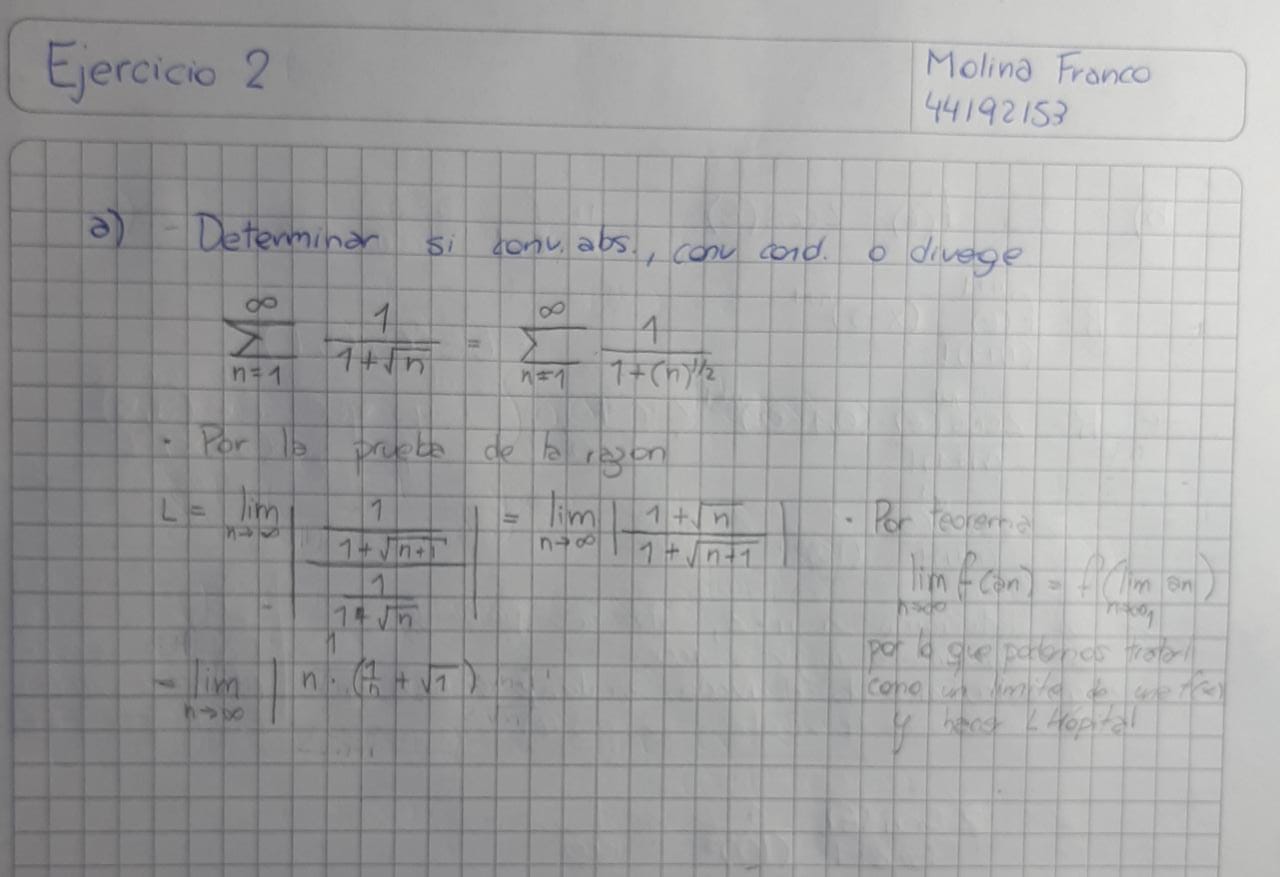 Ejercicio 2
Molina Franco
44192153
a) - Determinar si conv. abs., conv cond. o divege
∞ ∑ n=1 1/(1+√n) = ∞ ∑ n=1 1/(1+(n)^1/2)
· Por la prueba de la razon
L = lim n→∞ | (1/(1+√(n+1)))/(1/(1+√n)) | = lim n→∞ | (1+√n)/(1+√(n+1)) |
· Por teorema
lim n→∞ f(an) = f(lim n→∞ an)
por lo que podemos
como un limite de
y L'Hopital
= lim n→∞ | n · (1/n + √1)